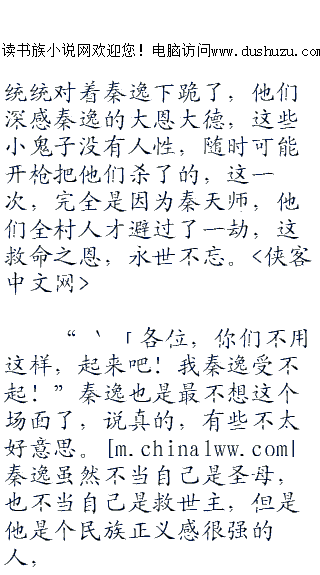 读书族小说网欢迎您！电脑访问www.dushuzu.com
统统对着秦逸下跪了，他们
深感秦逸的大恩大德，这些
小鬼子没有人性，随时可能
开枪把他们杀了的，这一
次，完全是因为秦天师，他
们全村人才避过了一劫，这
救命之恩，永世不忘。<侠客
中文网>
“｀「各位，你们不用
这样，起来吧！我秦逸受不
起！”秦逸也是最不想这个
场面了，说真的，有些不太
好意思。[m.china1ww.com|
秦逸虽然不当自己是圣母，
也不当自己是救世主，但是
他是个民族正义感很强的
人，